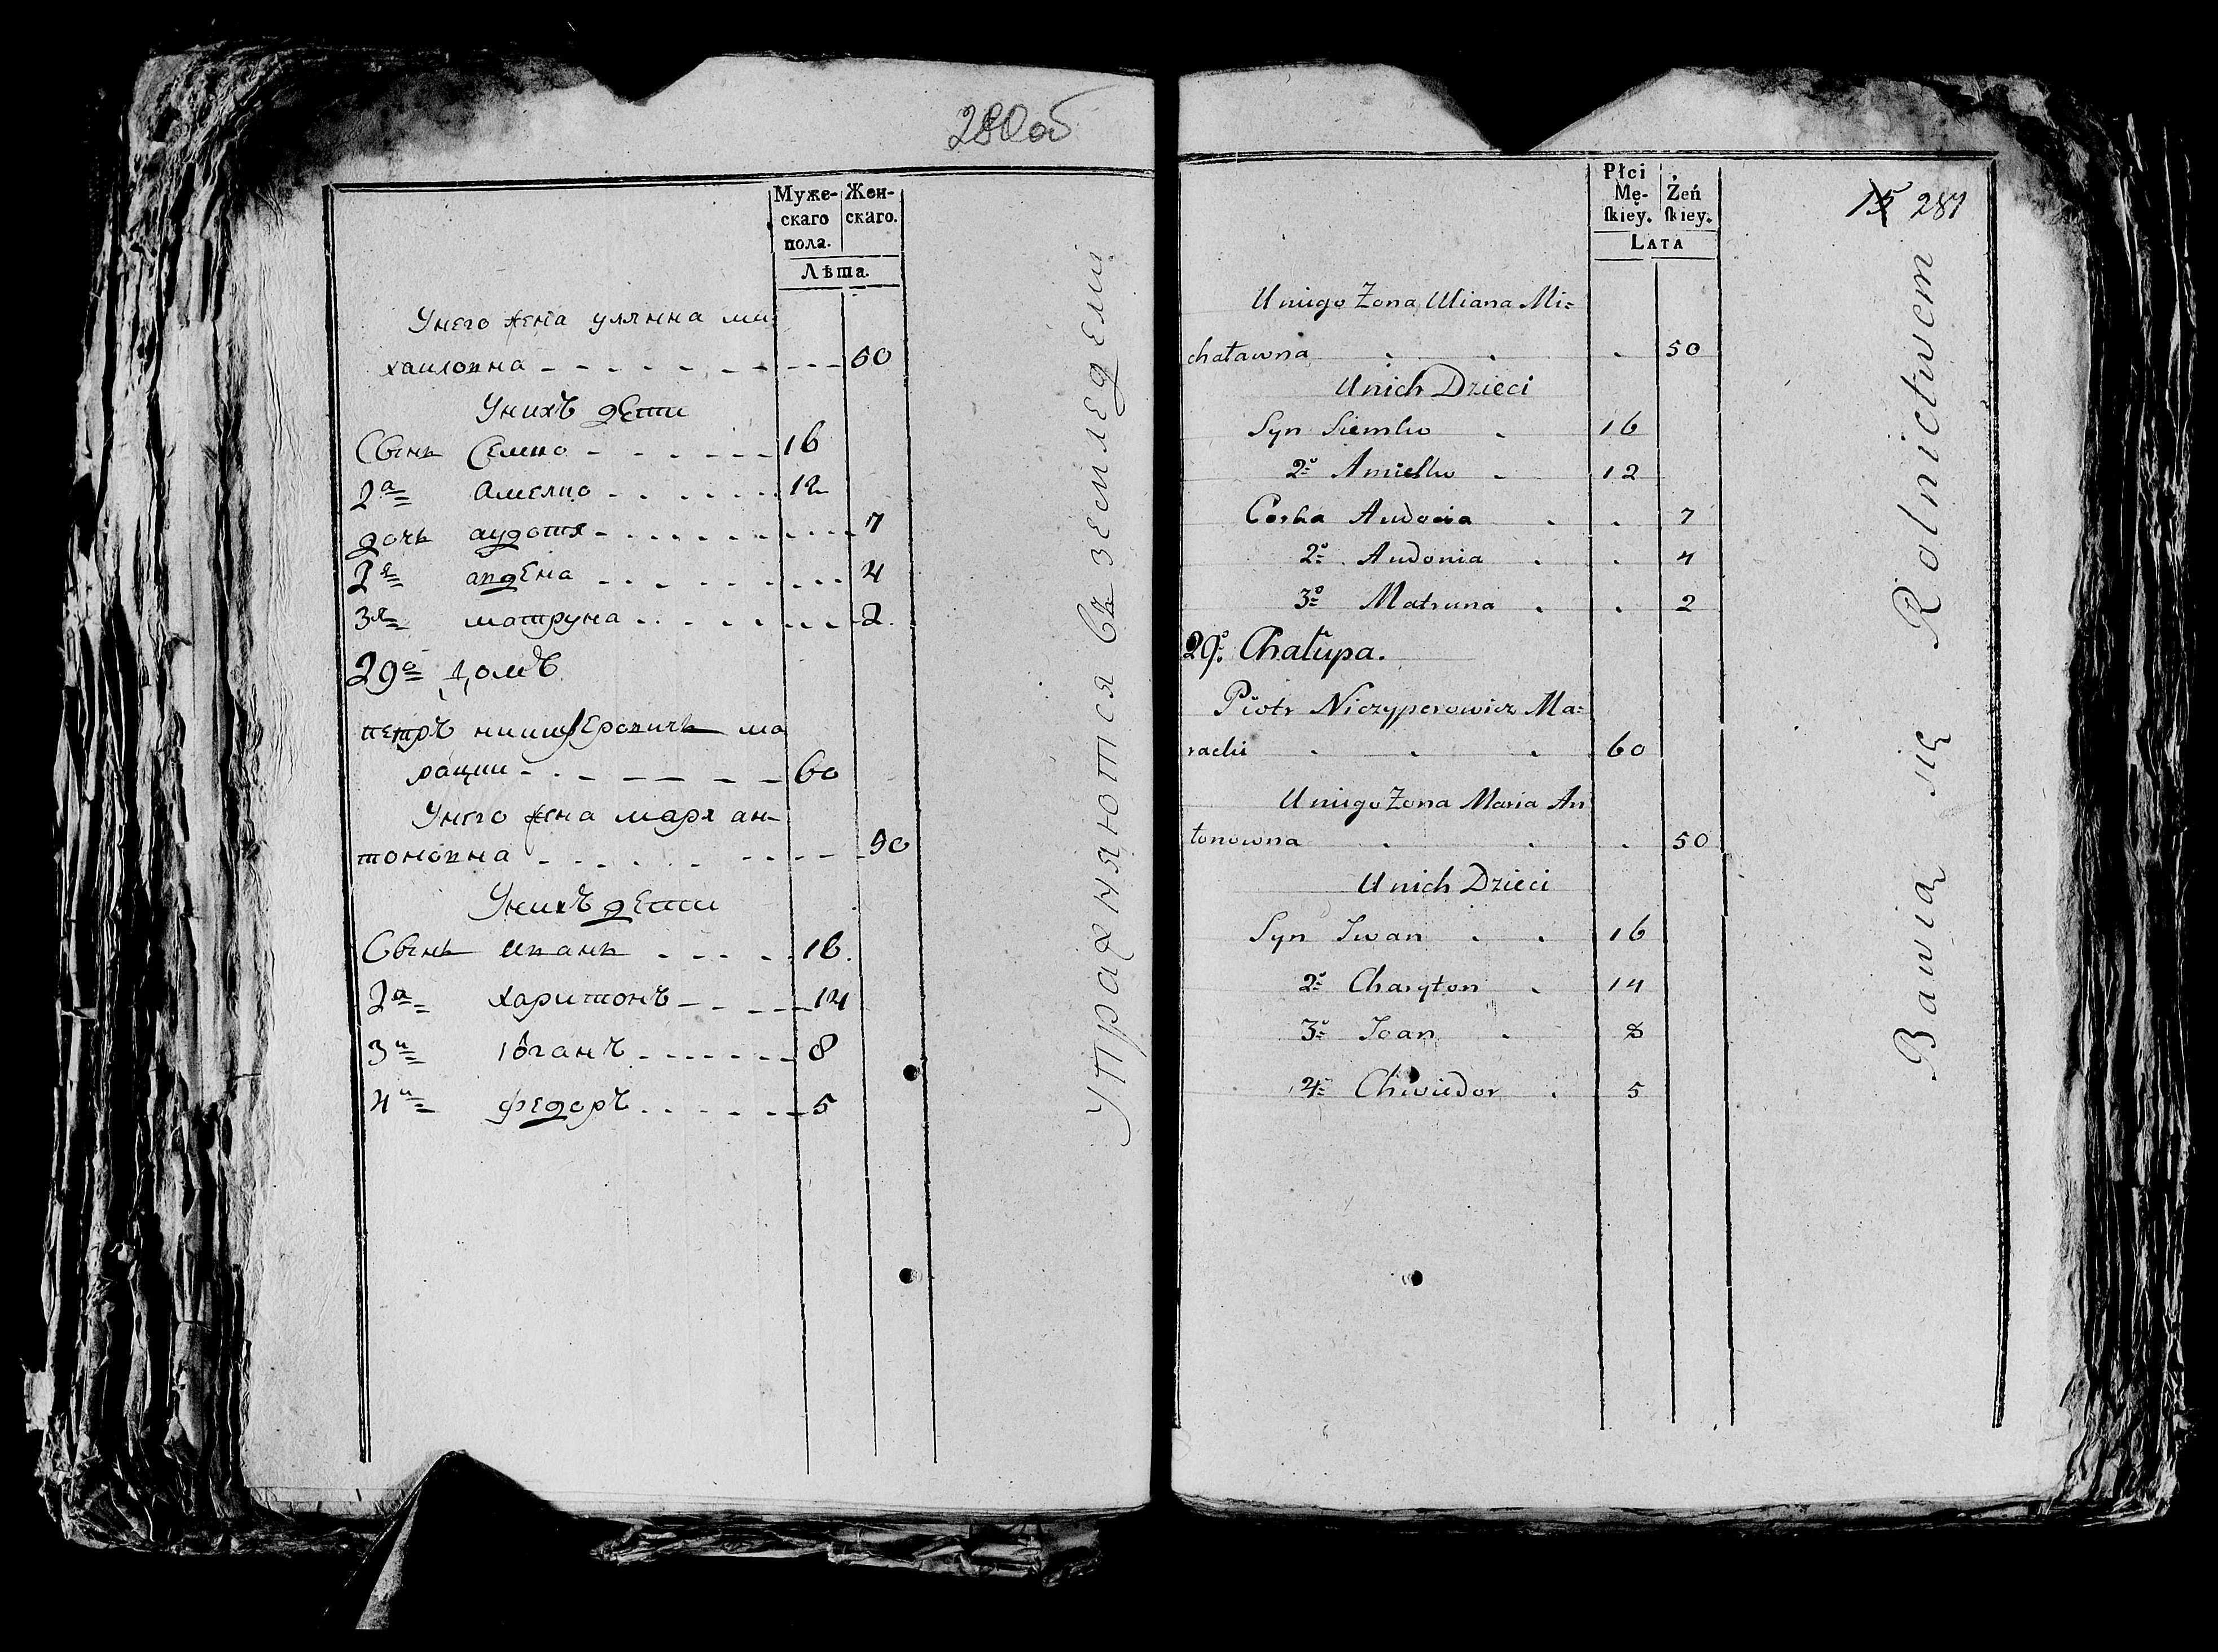 280об
Муже- Жен-
скаго скаго.
пола.
Лѣта.
Унего жена улянна ми-
хаиловна 50
Унихъ дети
Сынъ Семко 16
2й Амелко 12
дочь аудотя 7
2я авденя 4
3я матруна 2
29й Домъ
петръ ничиперовичъ ма
рацки 60
Унего жена маря ан-
тоновна 50
Унихъ дети
Сынъ иванъ 16
2й харитонъ 14
3й іоганъ 8
4й федоръ 5
Упражняются въ земледелии
Płci
Mę- Żeń
skiey. skiey.
LATA
15 281
U niego Żona Uliana Mi=
chaławna 50
U nich Dzieci
Syn Siemko 16
2o Amielko 12
Corka Audocia 7
2o Audonia 4
3o Matruna 2
29o. Chałupa.
Piotr Niczyperowicz Ma=
racki 60
U niego Żona Maria An
tonowna 50
U nich Dzieci
Syn Iwan 16
2o Charyton 14
3o Joan 8
4o Chwiedor 5
Bawią się Rolnictwem